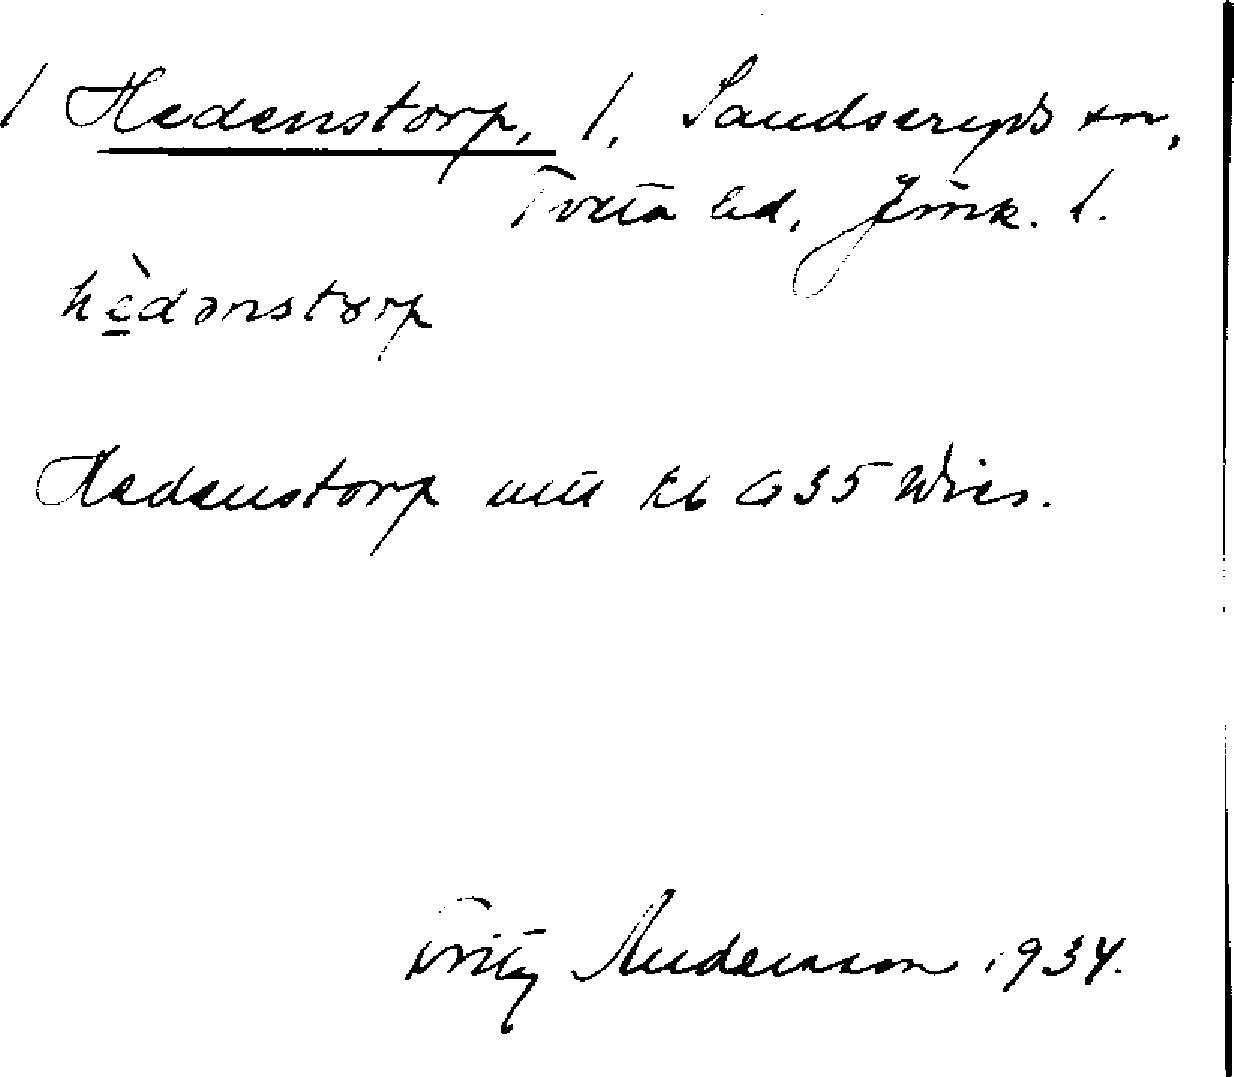 / Hedenstorp, /. Sandseryds sn,
Tveta hd, Jönk. l.
hèdənstorp
Hedenstorp utu Kb G35 Wies.
Fritz Andersson 1934.